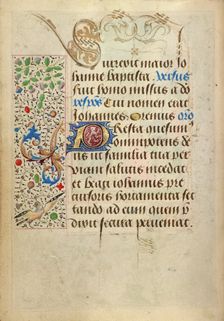 Surrexit maior Jo
hanne baptista Versus
fuit homo missus a deo
Responsus Cui nomen erat
Johannes Oremus oro
Presta quesum
omnipotens de
us ut familia tua per
viam salutis incedat
et beati iohannis pre
cursoris hortamenta sec
tando ad eum quem p
dixit secura perveniat